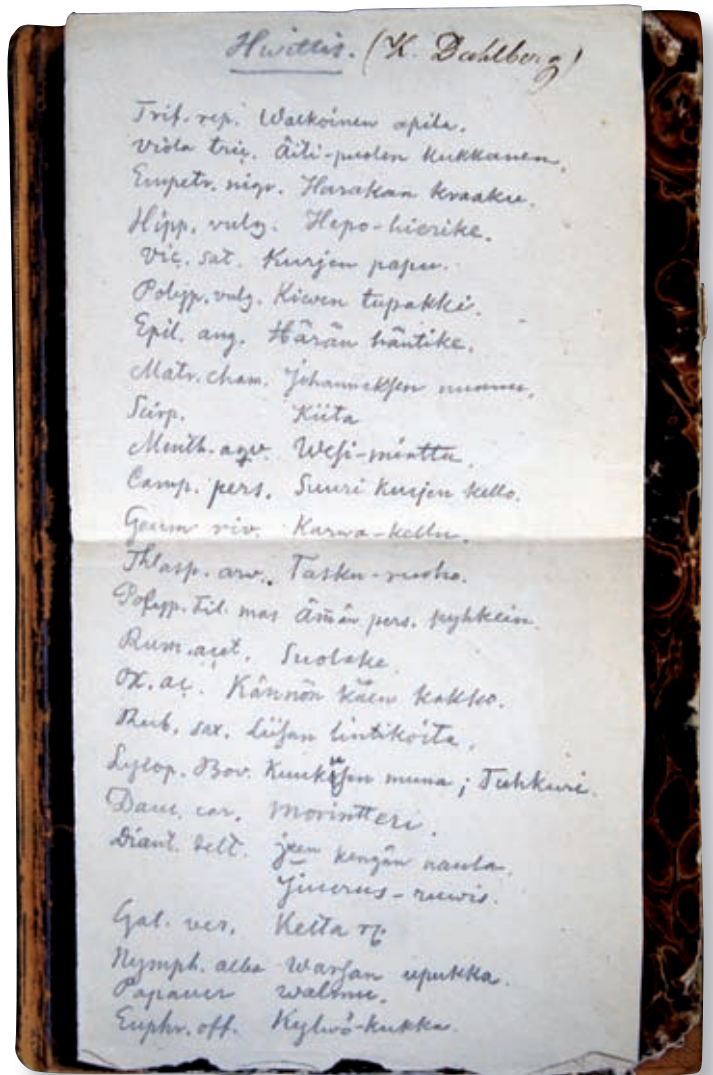 Hwittis. (K. Dahlberg)
Trif. rep. Walkoinen apila.
Viola tric. Äiti-puolen kukkanen.
Empetr. nigr. Harakan kraaku.
Hipp. vulg. Hepo-hierike.
Vic. sat. Kurjen papu.
Polyp. vulg. Kiwen tupakki.
Epil. ang. Härän häntike.
Matr. cham. Johanneksen
Scirp. Kiita
Menth. aqv. Wesi-mintta.
Camp. pers. Suuri kurjen kello.
Geum riv. Karwa-kello.
Thlasp. arv. Tasku-ruoho.
Polyp. fil. mas Ämän pers. pyhkein.
Rum. acet. Suolake.
Ox. ac. Kännön käen kakko.
Rub. sax. Liisan lintikoita.
Lycop. Bov. muna; Tuhkuri.
Dauc. car. Morintteri.
Diant. delt. kengän naula.
-ruwis.
Gal. ver. Kelta
Nymph. alba Warsan upukka.
Papaver walmu.
Euphr. off. Kylwö-kukka.